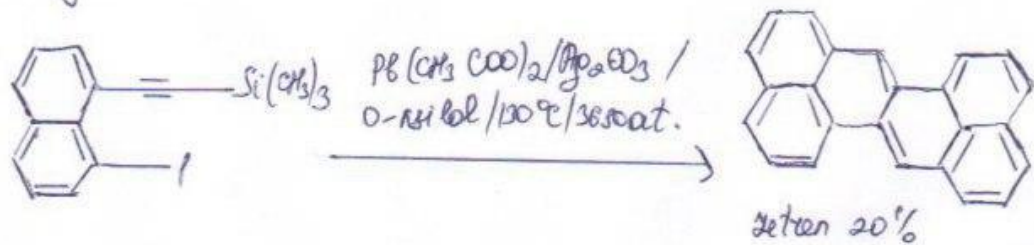 Si(CH₃)₃
Pd(CH₃COO)₂/Ag₂CO₃/
O-ksilol/130°C/36soat.
I
zetren 20%